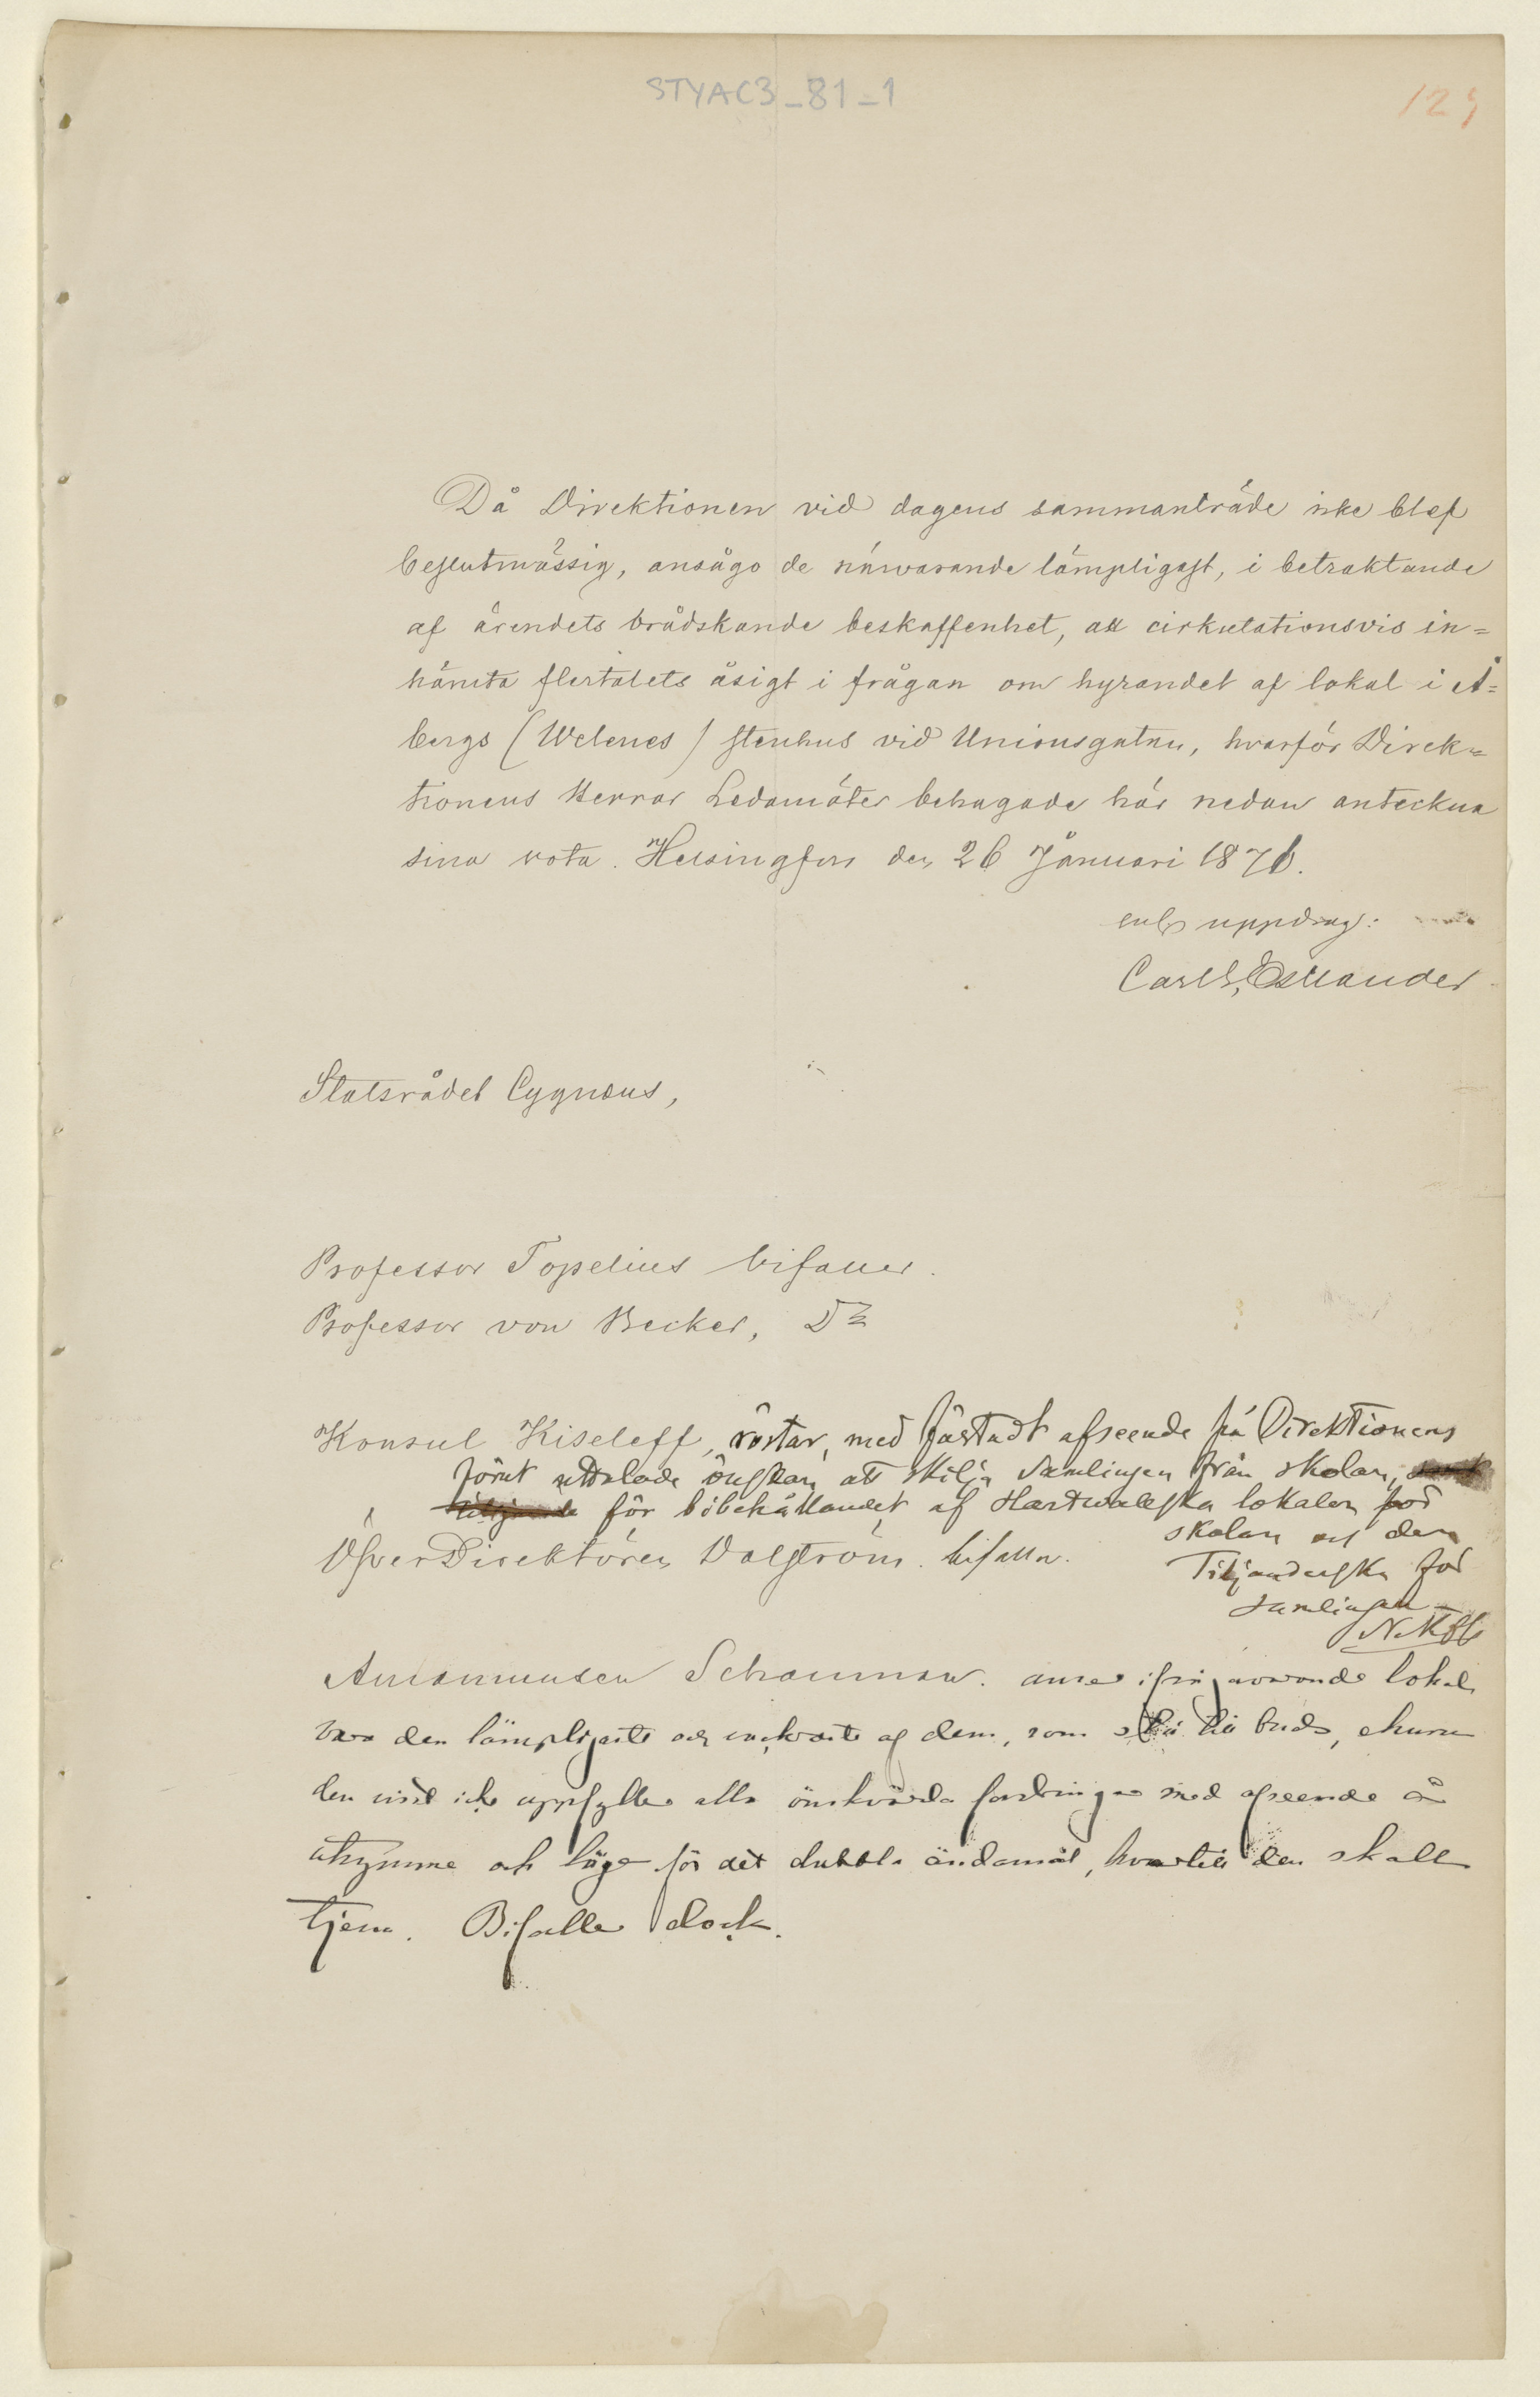 STYAC3_81_1
129
Då Direktionen vid dagens sammanträde icke blef
beslutmässig, ansågo de närvarande lämpligast, i betraktande
af ärendets brådskande beskaffenhet, att cirkulationsvis in=
hämta flertalets åsigt i frågan om hyrandet af lokal i Å=
bergs (Welenes) stenhus vid Unionsgatan, hvarför Direk=
tionens Herrar Ledamöter behagade här nedan anteckna
sina vota. Helsingfors den 26 Januari 1876.
enl. uppdrag:
Carl G. Estlander
Statsrådet Cygnæus,
Professor Topelius bifaller.
Professor von Becker, Do
Konsul Kiseleff, röstar, med fästadt afseende på Direktionens
förut uttalade önskan att skilja Samlingen från skolan,
för bibehållandet af Hartwalska lokalen för
skolan och den
Tiljanderska för
samlingen
ÖfverDirektören Dalström. bifaller.
Amanuensen Schauman. anser ifrågavarande lokal
vara den lämpligaste och vackraste af dem, som stå till buds, ehuru
den visst icke uppfyller alla önskvärda fordringar med afseende å
utrymme och läge för det dubbla ändamål, hvartill den skall
tjena. Bifaller dock.